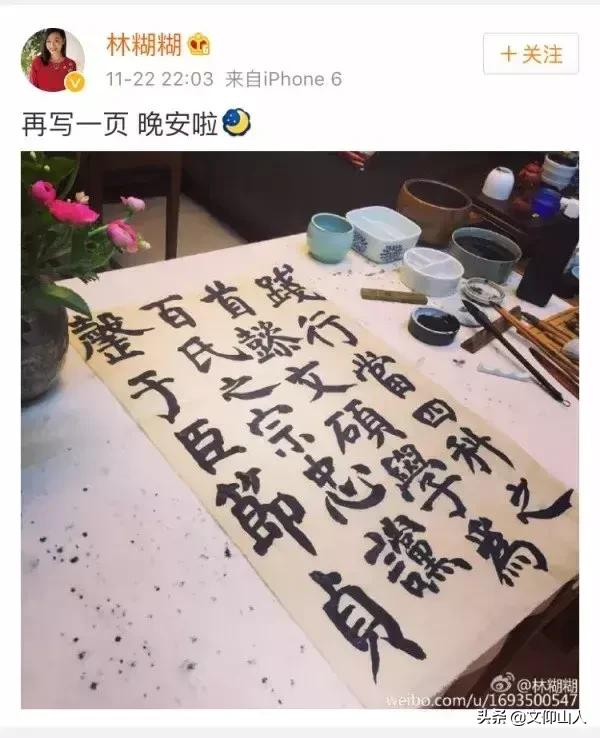 林糊糊
11-22 22:03 来自iPhone 6
+关注
再写一页 晚安啦
踐行當四科之
首懿文碩學爲
百氏之宗忠讜
罄于臣節貞
@林糊糊
weibo.com/u/1693500547
头条 @文仰山人